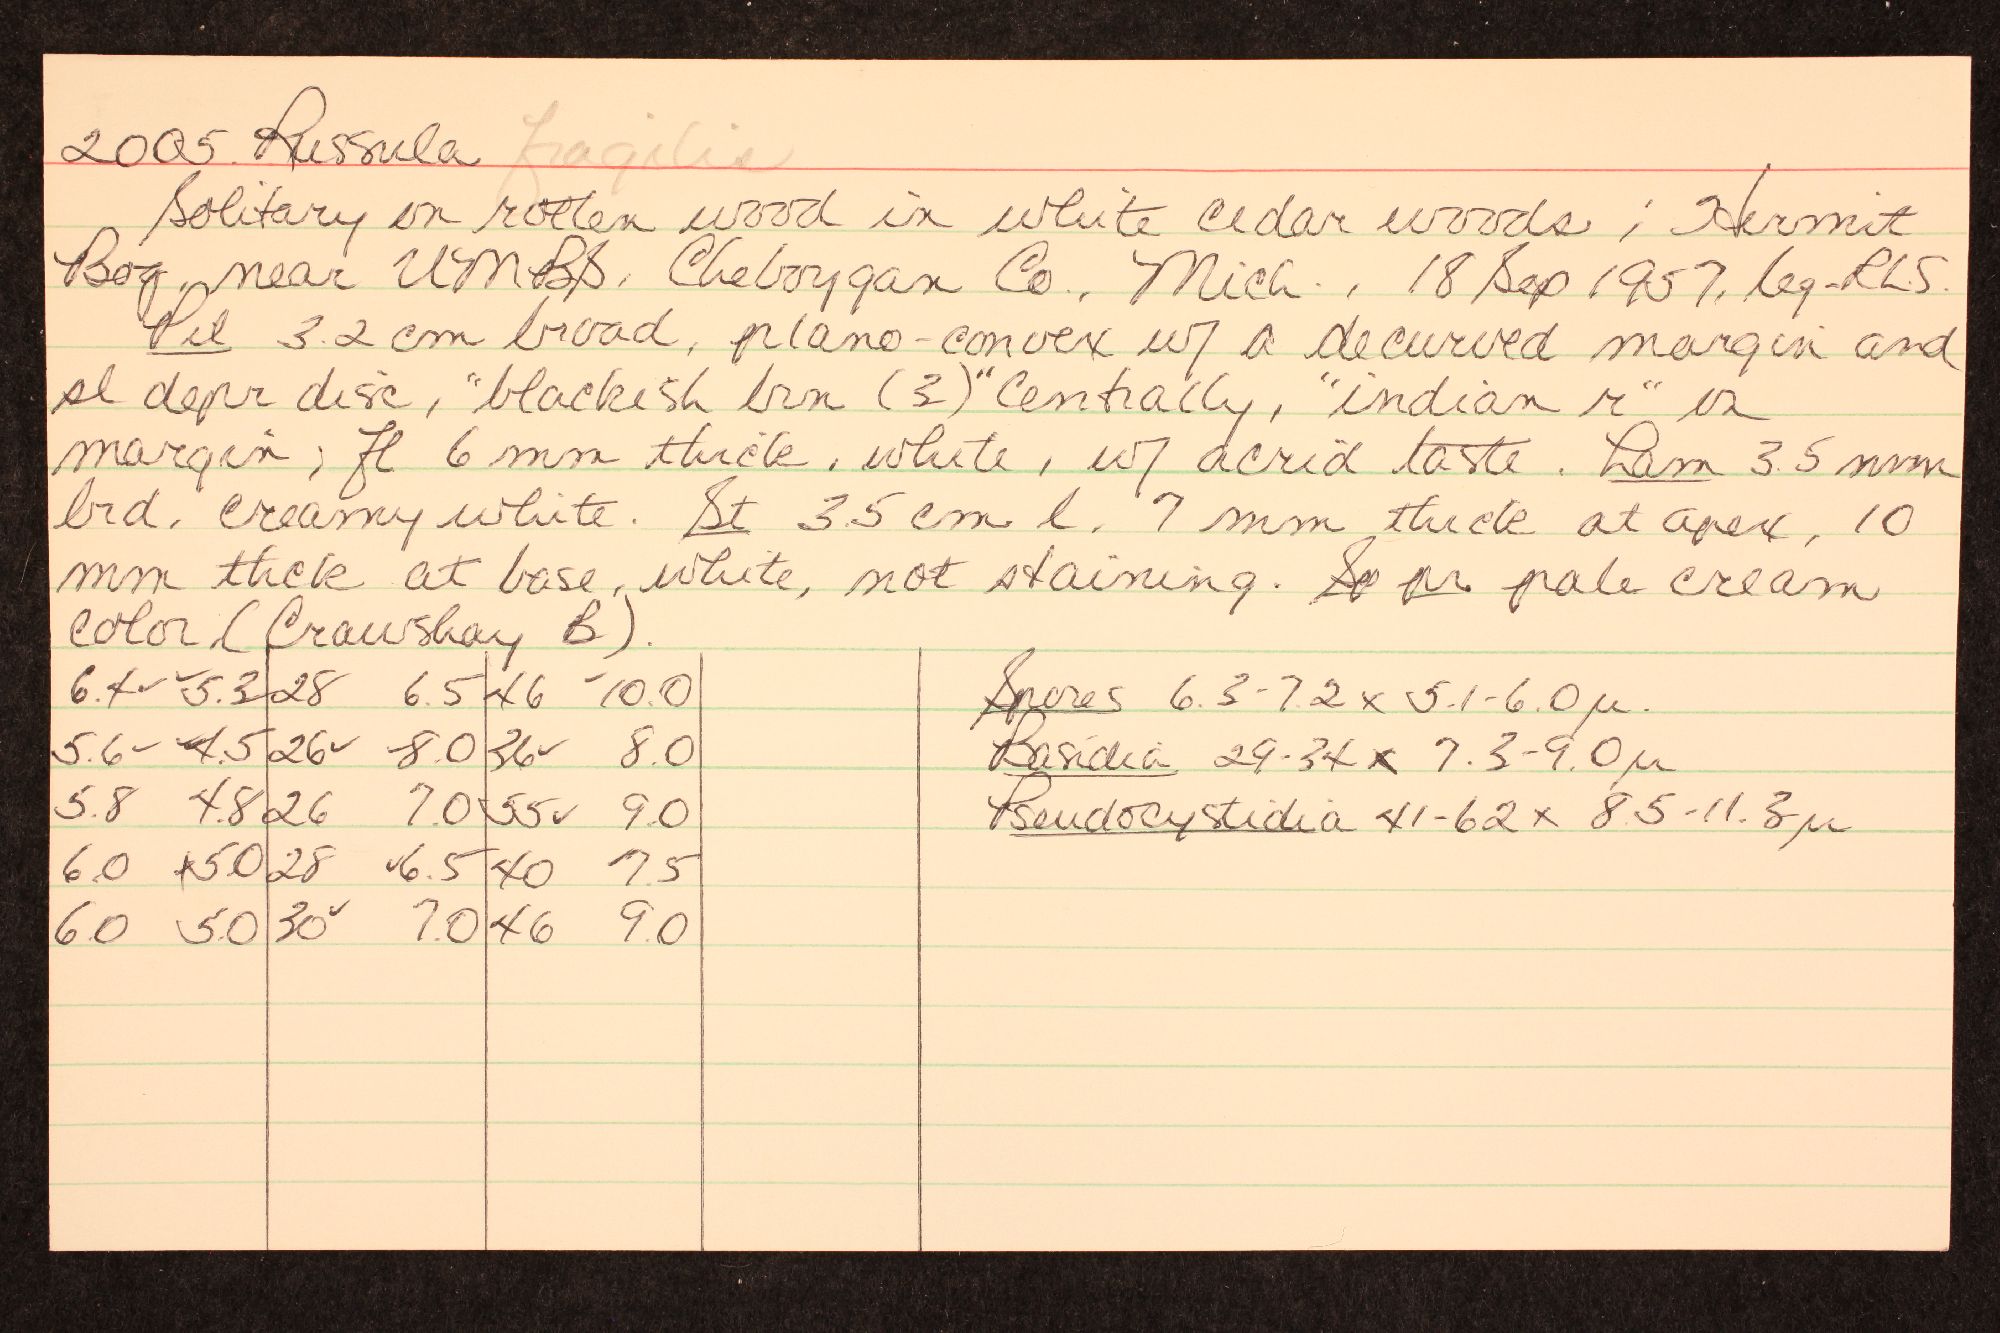 2005. Russula fragilis
Solitary on rotten wood in white cedar woods; Hermit
Bog, near UMBS, Cheboygan Co., Mich., 18 Sep 1957, leg-RLS.
Pil 3.2 cm broad, plano-convex w/ a decurved margin and
sl depr disc, "blackish brn (3)" centrally, "indian r" on
margin; fl 6 mm thick, white, w/ acrid taste. Lam 3.5 mm
brd, creamy white. St 3.5 cm l, 7 mm thick at apex, 10
mm thick at base, white, not staining. Sp pr pale cream
color (Crawshay B).
6.4✓ ✓5.3 28 6.5 46 ✓10.0
5.6✓ 4.5 26✓ 8.0 36✓ 8.0
5.8 4.8 26 7.0 55✓ 9.0
6.0 5.0 28 ✓6.5 40 7.5
6.0 5.0 30✓ 7.0 46 9.0
Spores 6.3-7.2 x 5.1-6.0 µ.
Basidia 29-34 x 7.3-9.0 µ
Pseudocystidia 41-62 x 8.5-11.3 µ